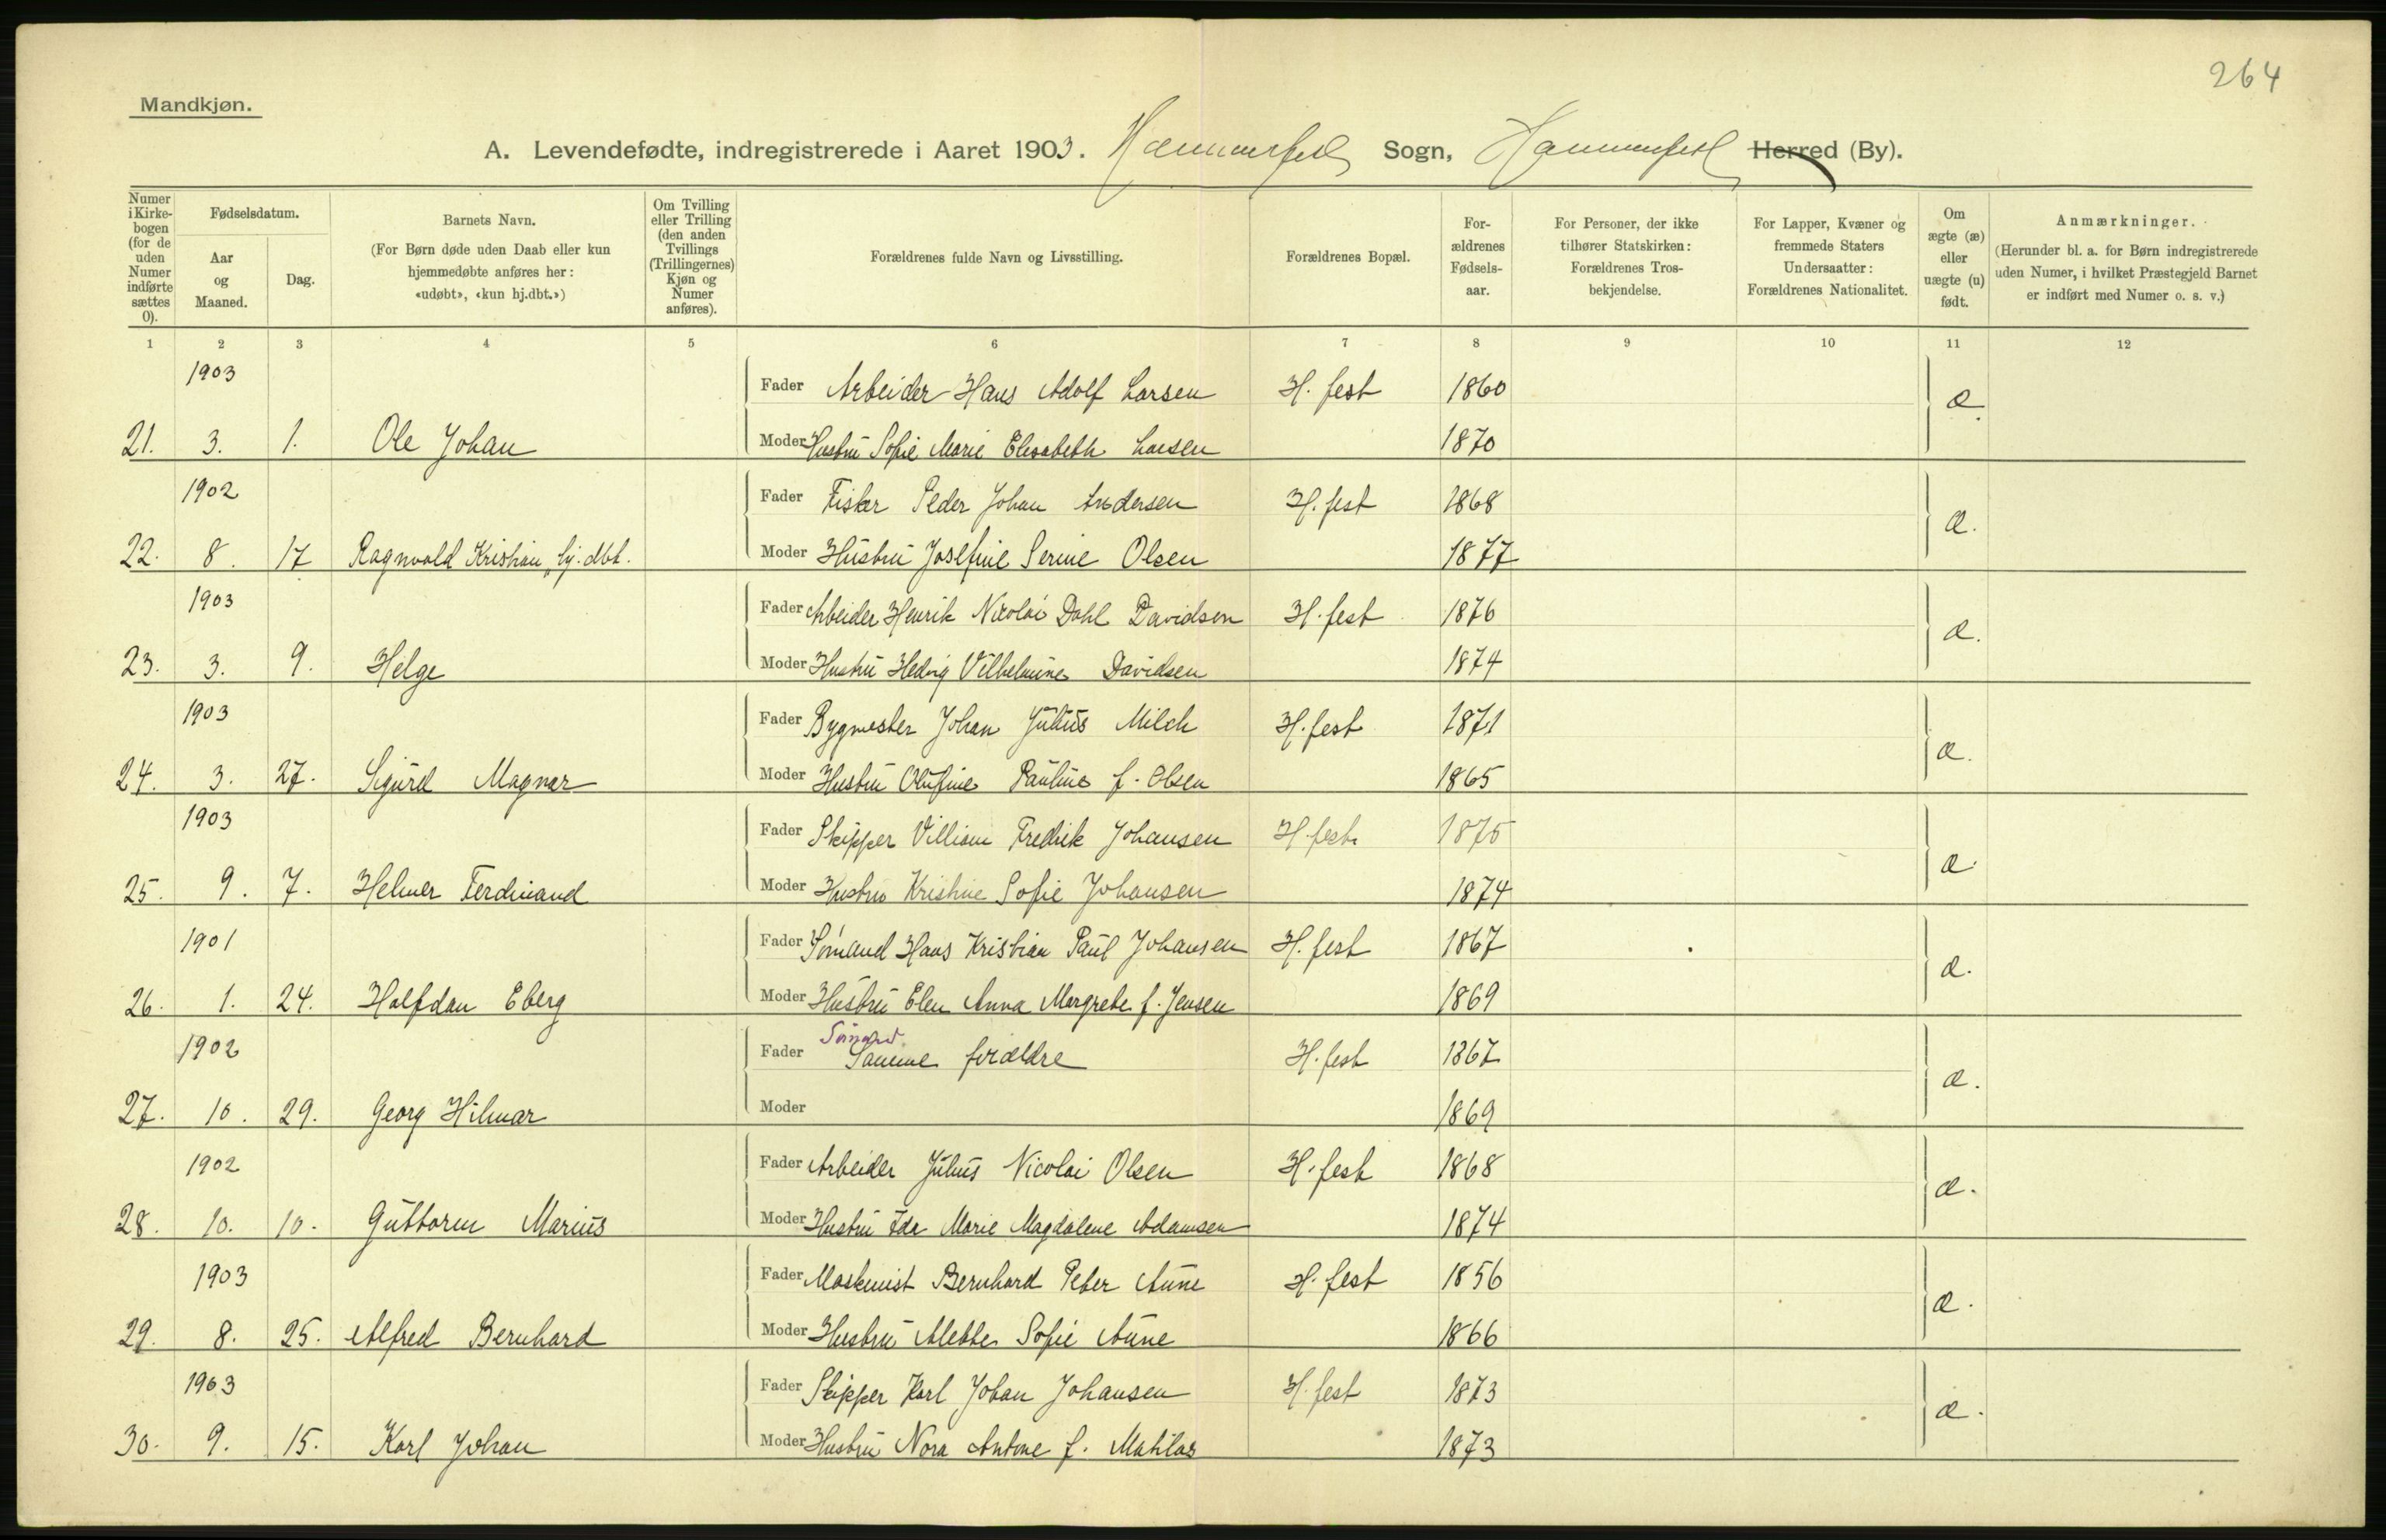 264
Mandkjøn.
A. Levendefødte, indregistrerede i Aaret 1903. Hammerfest Sogn, Hammerfest Herred (By).
Numer i Kirkebogen (for de uden Numer indførte sættes 0).
Fødselsdatum.
Aar og Maaned.
Dag.
Barnets Navn.
(For Børn døde uden Daab eller kun
hjemmedøbte anføres her:
«udøbt», «kun hj.dbt.»)
Om Tvilling eller Trilling (den anden Tvillings (Trillingernes) Kjøn og Numer anføres).
Forældrenes fulde Navn og Livsstilling.
Forældrenes Bopæl.
For-
ældrenes
Fødsels-
aar.
For Personer, der ikke
tilhører Statskirken:
Forældrenes Tros-
bekjendelse.
For Lapper, Kvæner og
fremmede Staters
Undersaatter:
Forældrenes Nationalitet.
Om
ægte (æ)
eller
uægte (u)
født.
Anmærkninger.
(Herunder bl. a. for Børn indregistrerede
uden Numer, i hvilket Præstegjeld Barnet
er indført med Numer o. s. v.)
1 2 3 4 5 6 7 8 9 10 11 12
1903 Fader Arbeider Hans Adolf Larsen H. fest 1860 æ.
21. 3. 1. Ole Johan Moder Hustru Sofie Marie Elisabeth Larsen 1870
1902 Fader Fisker Peder Johan Andersen H. fest 1868 æ.
22. 8. 17 Ragnvald Kristian, hj. dbt. Moder Hustru Josefine Serine Olsen 1877
1903 Fader Arbeider Henrik Nicolai Dahl Davidsen H. fest 1876 æ.
23. 3. 9. Helge Moder Hustru Hedvig Vilhelmine Davidsen 1874
1903 Fader Bygmester Johan Julius Milch H. fest 1871 æ.
24. 3. 27. Sigurd Magnar Moder Hustru Olufine Pauline f. Olsen 1865
1903 Fader Skipper Villiam Fredrik Johansen H. fest 1875 æ.
25. 9. 7. Helmer Ferdinand Moder Hustru Kristine Sofie Johansen 1874
1901 Fader Sømand Hans Kristian Paul Johansen H. fest 1867 æ.
26. 1. 24. Halfdan Eberg Moder Hustru Elen Anna Margrete f. Jensen 1869
Sømand
1902 Fader Samme forældre H. fest 1867 æ.
27. 10. 29. Georg Hilmar Moder 1869
1902 Fader Arbeider Julius Nicolai Olsen H. fest 1868 æ.
28. 10. 10. Guttorm Marius Moder Hustru Ida Marie Magdalene Adamsen 1874
1903 Fader Maskinist Bernhard Peter Aune H. fest 1856 æ.
29. 8. 25. Alfred Bernhard Moder Hustru Alette Sofie Aune 1866
1903 Fader Skipper Karl Johan Johansen H. fest 1873 æ.
30. 9. 15. Karl Johan Moder Hustru Nora Antone f. 1873